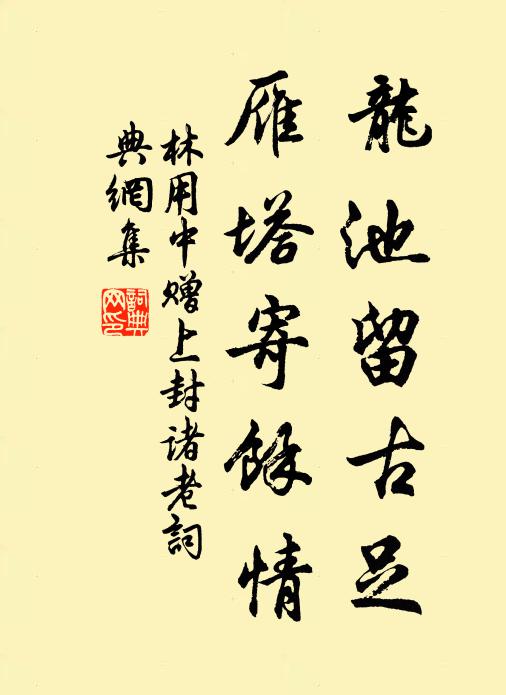 龍池留古足
雁塔寄餘情
林用中赠上封诸老詞
典網集
詞典网印